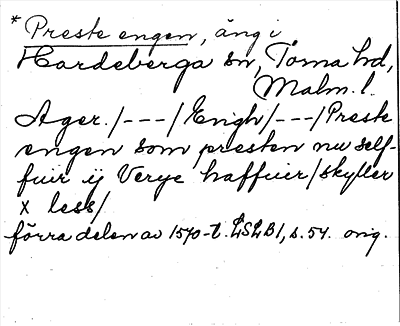 * Preste engen, äng i
Hardeberga sn, Torna hd,
Malm. l.
Ager. /---/ Engh /---/ Preste
engen som presten nu self-
fuir ij Verye haffuer / skyller
x less /
förra delen av 1570-t. LSLB1, s. 54. orig.